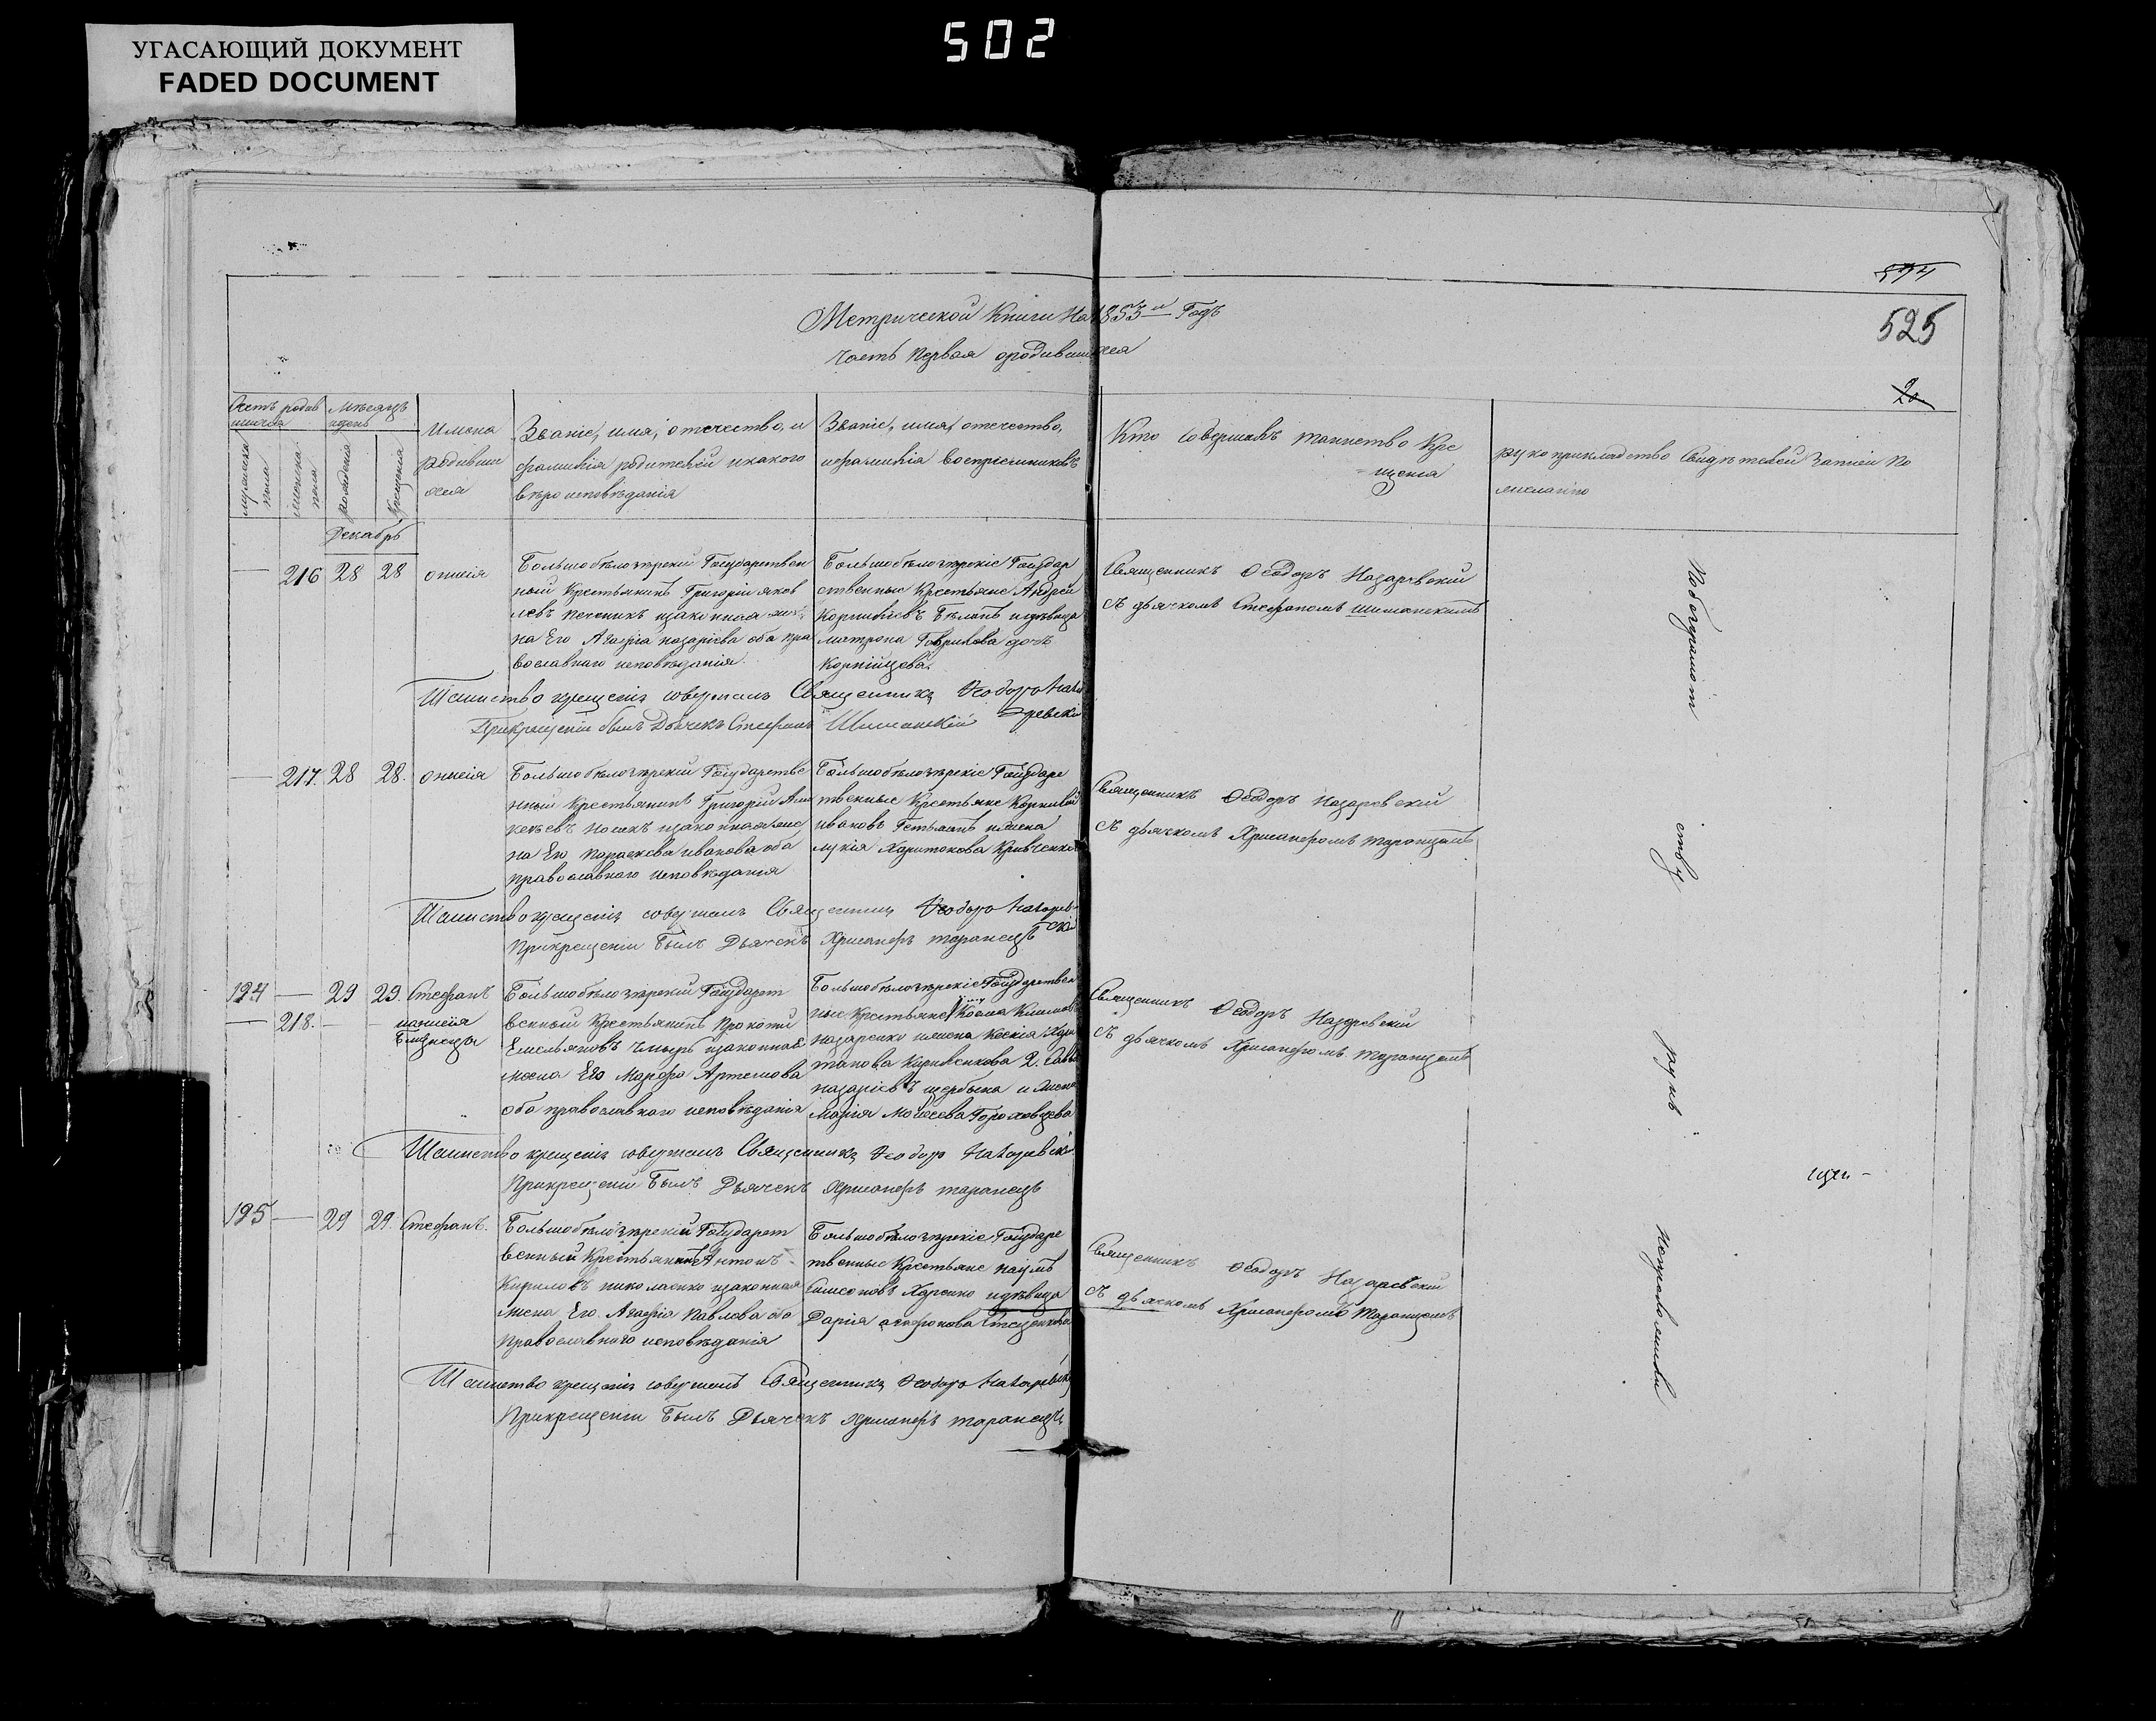 502
УГАСАЮЩИЙ ДОКУМЕНТ
FADED DOCUMENT
525
20
Метрической Книги На 1853й Годъ
Часть Первая о родившихся
Счетъ родив
шихся
Мѣсяцъ
и день
Имена
родивши
хся
Званіе, имя, отечество, и
фамилія родителей и какого
вѣроисповѣданія
Званіе, имя, отечество,
и фамилія воспріемниковъ
Кто совершалъ таинство Кре
щенія
рукоприкладство Свидѣтелей записи по
желанію
мужеска
пола
женска
пола
рожденія
Крещенія
Декабрь
216 28 28 онисія
Большобѣлозѣрскій Государствен
ный Крестьянинъ Григорій яков
левъ и законная же
на Его Агафія назаріева оба пра
вославнаго исповѣданія.
Большобѣлозѣрскіе Государ
ственные Крестьяне Андрей
Корниліевъ Бѣлый и дѣвица
матрона Гаврилова дочь
Священникъ Ѳеодоръ Назаревскій
Съ дьячкомъ Стефаномъ шиманскимъ
Таинство крещенія совершалъ Священникъ Ѳеодоръ Наза
ревскій
При крещеніи былъ Дьячекъ Стефанъ Шиманскій
217. 28 28. онисія
Большобѣлозѣрскій Государстве
нный Крестьянинъ Григорій Але
ксѣевъ и законная же
на Его Параскева иванова оба
православнаго исповѣданія
Большобѣлозѣрскіе Государс
твенные Крестьяне Корнилій
ивановъ Гетьманъ и жена
лукія Харитонова Кривченкова
Священникъ Ѳеодоръ Назаревскій
Съ дьячкомъ Хрисанфомъ таранцемъ
Таинство крещенія совершалъ Священникъ Ѳеодоръ Назарев
скій
При крещеніи Былъ Дьячекъ Хрисанфъ таранецъ
194 — 29 29. Стефанъ
— 218. — —
Близнецы
Большобѣлозѣрскій Государст
венный Крестьянинъ Прокопій
Емельяновъ и законная
жена Его Марфа Артемова
оба православнаго исповѣданія
Большобѣлозѣрскіе Государствен
ные Крестьяне Косма Климовъ
назаренко и жена Ксенія Хари
тонова 2. Савва
назаріевъ щербина и жена
Марія Моисеева
Священникъ Ѳеодоръ Назаревскій
Съ дьячкомъ Хрисанфомъ таранцемъ
Таинство крещенія совершалъ Священникъ Ѳеодоръ Назаревскій
При крещеніи Былъ Дьячекъ Хрисанфъ таранецъ
195 — 29 29. Стефанъ.
Большобѣлозѣрскій Государст
венный Крестьянинъ Антонъ
Кириловъ николаенко и законная
жена Его Агафія Павлова оба
Православнаго исповѣданія
Большобѣлозѣрскіе Государс
твенные Крестьяне наумъ
Симеоновъ Харенко и дѣвица
Дарія агафонова Стеценкова
Священникъ Ѳеодоръ Назаревскій
Съ дьячкомъ Хрисанфомъ Таранцемъ
Таинство крещенія совершалъ Священникъ Ѳеодоръ Назаревскій
При крещеніи Былъ Дьячекъ Хрисанфъ таранецъ